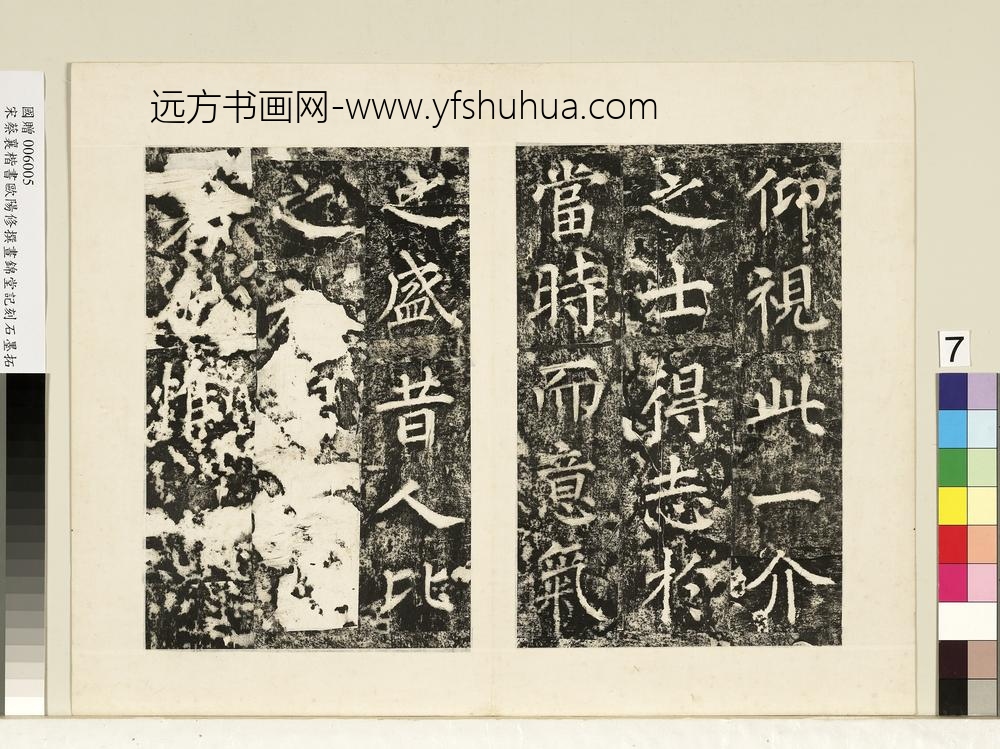 远方书画网-www.yfshuhua.com
仰視此一介
之士得志於
當時而意氣
之盛昔人比
之衣
者惟
7
國贈006005
宋蔡襄楷書歐陽修撰晝錦堂記刻石墨拓